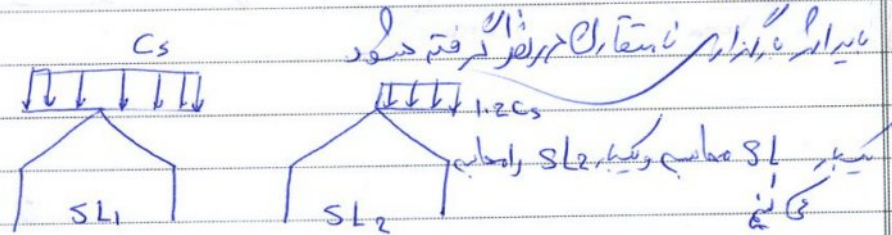 باید اثر بارگذاری نامتقارن در نظر گرفته شود
Cs
1.2Cs
یکبار SL محاسبه و یکبار SL2 را محاسبه
می کنیم
SL1
SL2